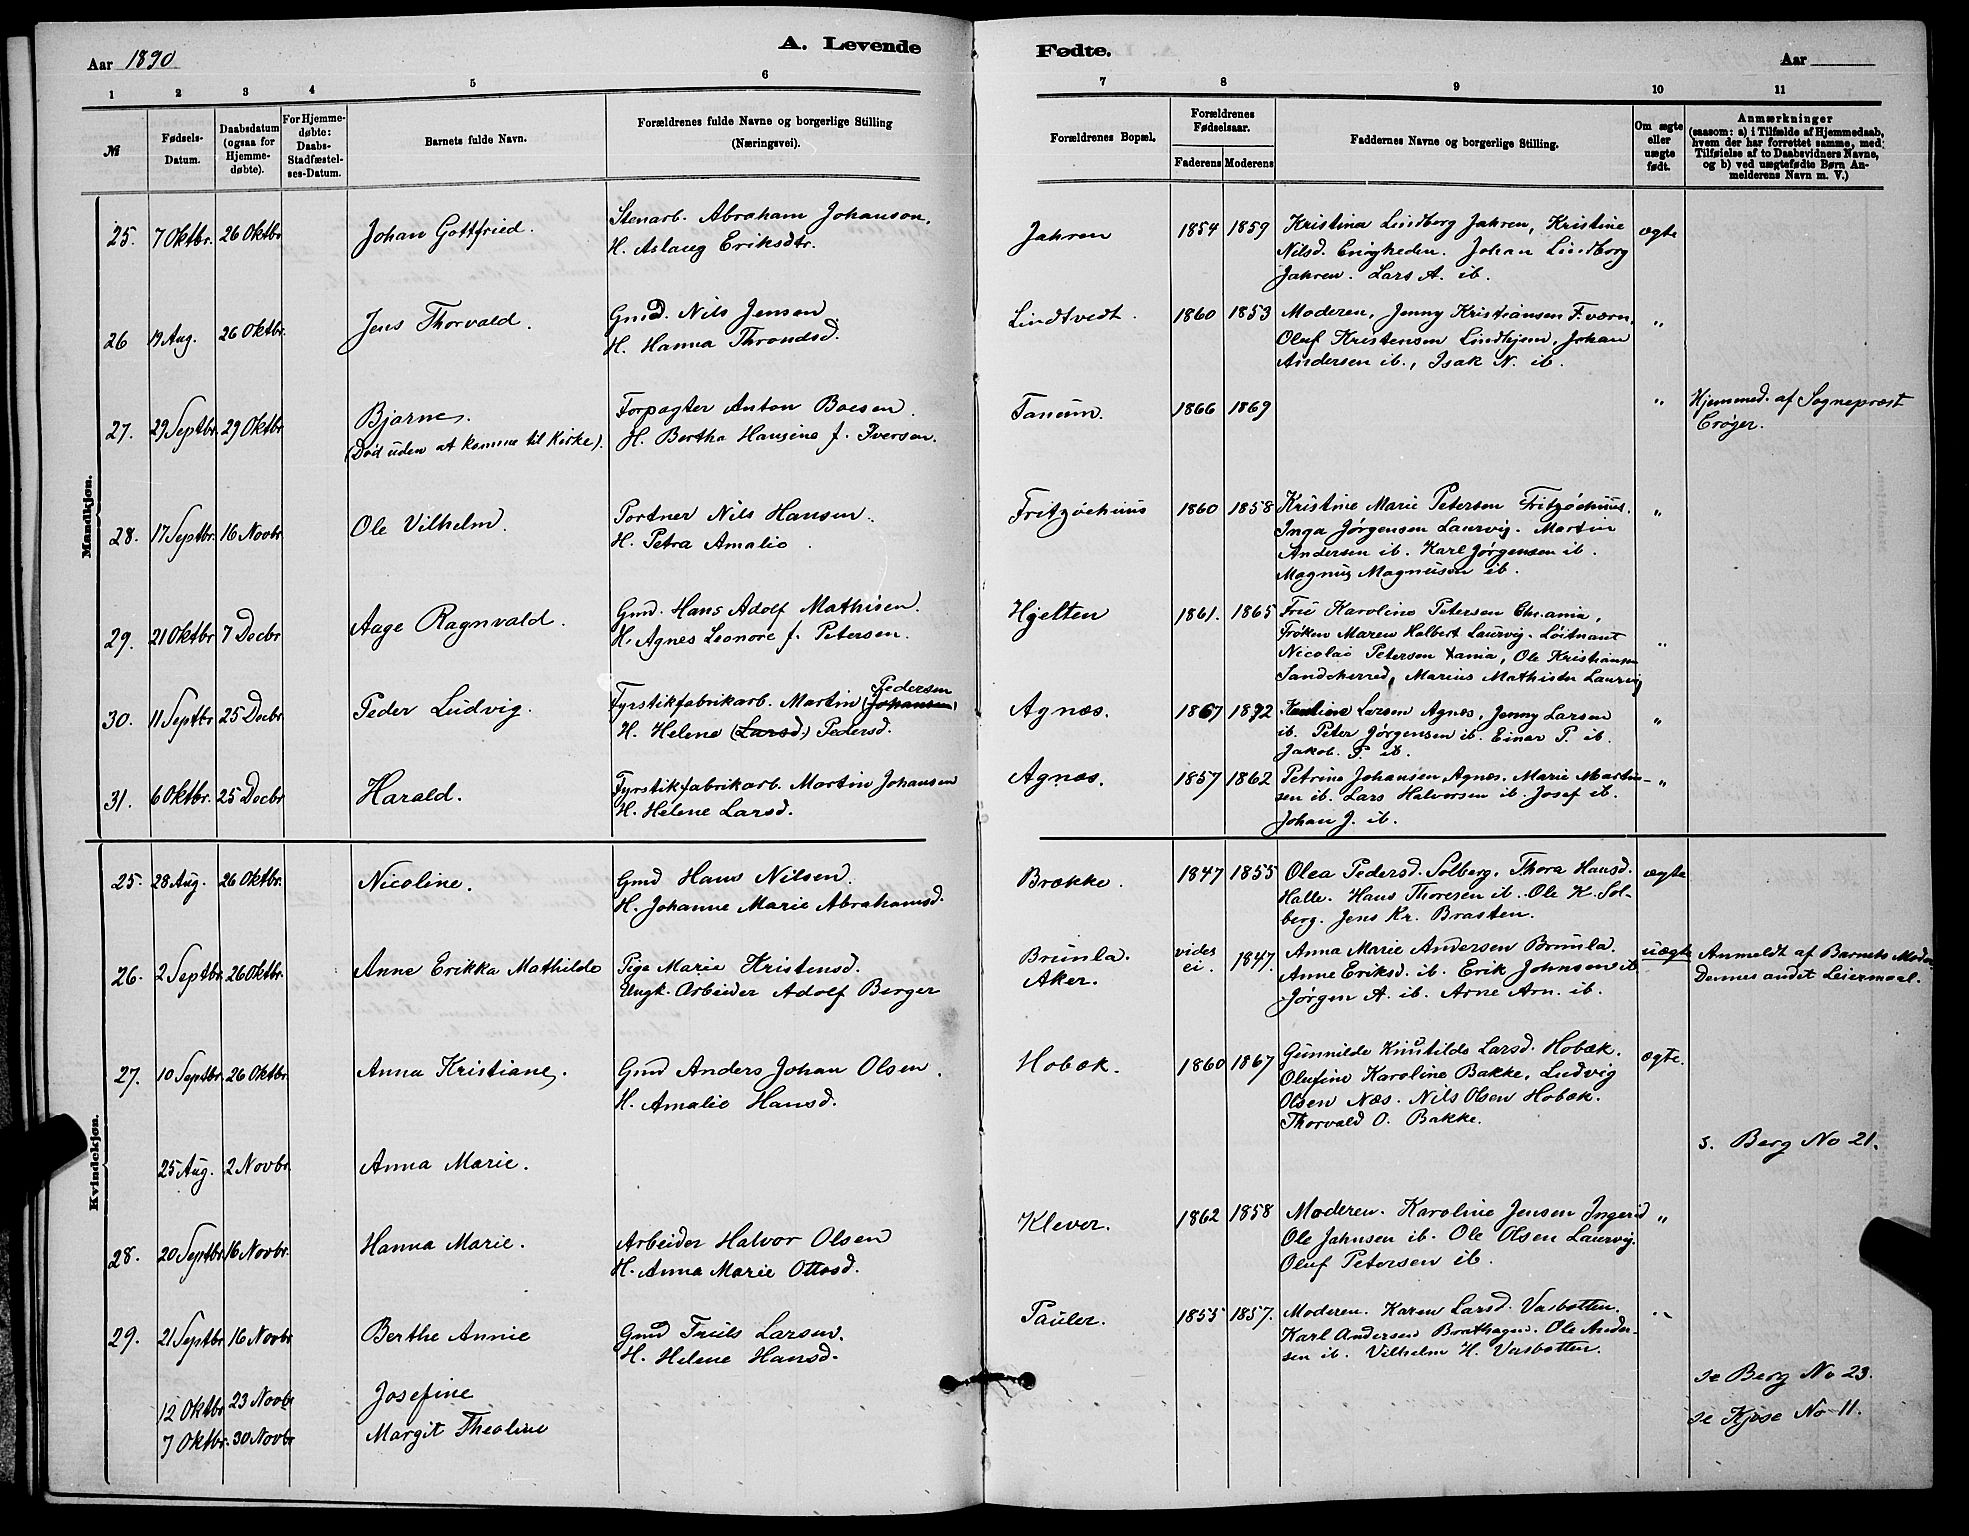 Aar 1890
A. Levende
Fødte.
Aar
1 2 3 4 5 6
7 8 9 10 11
№
Fødsels-
Datum.
Daabsdatum
(ogsaa for
Hjemme-
døbte).
For Hjemme-
døbte:
Daabs-
Stadfæstel-
ses-Datum.
Barnets fulde Navn.
Forældrenes fulde Navne og borgerlige Stilling
(Næringsvei).
Forældrenes Bopæl.
Forældrenes
Fødselsaar.
Faderens Moderens
Faddernes Navne og borgerlige Stilling.
Om ægte
eller
uægte
født.
Anmærkninger
(saasom: a) i Tilfælde af Hjemmedaab,
hvem der har forrettet samme, med
Tilføielse af to Daabsvidners Navne,
og b) ved uægtefødte Børn An-
melderens Navn m. V.)
Mandkjøn.
25. 7 Oktbr. 26 Oktbr Johan Gottfried. Stenarb. Abraham Johanson,
H. Aslaug Eriksdtr.
Jahren 1854 1859 Kristina Lindborg Jahren, Kristine ægte
Nilsd. Enigheden. Johan Lindborg
Jahren. Lars A. ib.
26 19 Aug. 26 Oktbr. Jens Thorvald. Gmd. Nils Jensen
H. Hanna Throndsd.
Lindtvedt. 1860 1853 Moderen, Jenny Kristiansen F.værn, "
Oluf Kristensen Lindhjem, Johan
Andersen ib., Isak N. ib.
27. 29 Septbr. 29 Oktbr Bjarne. Forpagter Anton Boesen.
(Død uden at komme til Kirke). H. Bertha Hansine f. Iversen.
Tanum. 1866 1869 " Hjemmed. af Sognepræst
Crøger.
28. 17 Septbr. 16 Novbr. Ole Vilhelm. Portner Nils Hansen.
H. Petra Amalie.
Fritzöehuus 1860 1858 Kristine Marie Petersen Fritzöehuus. "
Inga Jørgensen Laurvig. Martin
Andersen ib. Karl Jørgensen ib.
Magnus Magnusen ib.
29. 21 Oktbr 7 Decbr Aage Ragnvald. Gmd. Hans Adolf Mathisen.
H. Agnes Leonore f. Petersen.
Hjelten 1861. 1865 Fru Karoline Petersen Chr.ania,
Frøken Maren Holbert Laurvig. Løitnant "
Nicolai Petersen Xania, Ole Kristiansen
Sandeherred, Marius Mathisen Laurvig
30. 11 Septbr 25 Decbr Peder Ludvig. Fyrstikfabrikarb. Martin (Johansen) Pedersen
H. Helene (Larsd.) Pedersd.
Agnæs. 1867 1872 Karoline Larsen Agnæs, Jenny Larsen "
ib. Peter Jørgensen ib. Einar P. ib.
Jakob. P. ib.
31. 6 Oktbr. 25 Decbr Harald. Fyrstikfabrikarb. Martin Johansen
H. Helene Larsd.
Agnæs. 1857 1862 Petrine Johansen Agnæs. Marie Martin- "
sen ib. Lars Halvorsen ib. Josef ib.
Johan J. ib.
Kvindekjøn.
25. 28 Aug. 26 Oktbr. Nicoline. Gmd Hans Nilsen.
H. Johanne Marie Abrahamsd.
Brække. 1847 1855 Olea Pedersd. Solberg. Thora Hansd. ægte
Halle. Hans Thoresen ib. Ole K. Sol-
berg. Jens Kr. Brasten.
26. 2 Septbr. 26 Oktbr. Anne Erikka Mathilde Pige Marie Kristensd.
Ungk. Arbeider Adolf Berger
Brunla. vides 1847. Anna Marie Andersen Brunla. uægte Anmeldt af Barnets Moder
Aker. ei. Anne Eriksd. ib. Erik Johnsen ib. Dennes andet Leiermaal.
Jørgen A. ib. Arne Arn. ib.
27. 10 Septbr 26 Oktbr. Anna Kristiane. Gmd Anders Johan Olsen.
H. Amalie Hansd.
Hobæk. 1860 1867 Gunnilde Knutilde Larsd. Hobæk. ægte.
Olufine Karoline Bakke. Ludvig
Olsen Næs. Nils Olsen Hobæk.
Thorvald O. Bakke.
25 Aug. 2 Novbr. Anna Marie. s. Berg No 21.
28. 20 Septbr 16 Novbr. Hanna Marie. Arbeider Halvor Olsen
H. Anna Marie Ottosd.
Klever. 1862 1858 Moderen. Karoline Jensen Ingerid "
Ole Jahnsen ib. Ole Olsen Laurvig.
Oluf Petersen ib.
29. 21 Septbr 16 Novbr Berthe Annie Gmd Truls Larsen.
H. Helene Hansd.
Pauler. 1855 1857. Moderen. Karen Larsd. Vasbotten. "
Karl Andersen Brathagen. Ole Ander-
sen ib. Vilhelm H. Vasbotten.
12 Oktbr. 23 Novbr Josefine se Berg No 23.
7 Oktbr. 30 Novbr Margit Theoline se Kjose No 11.